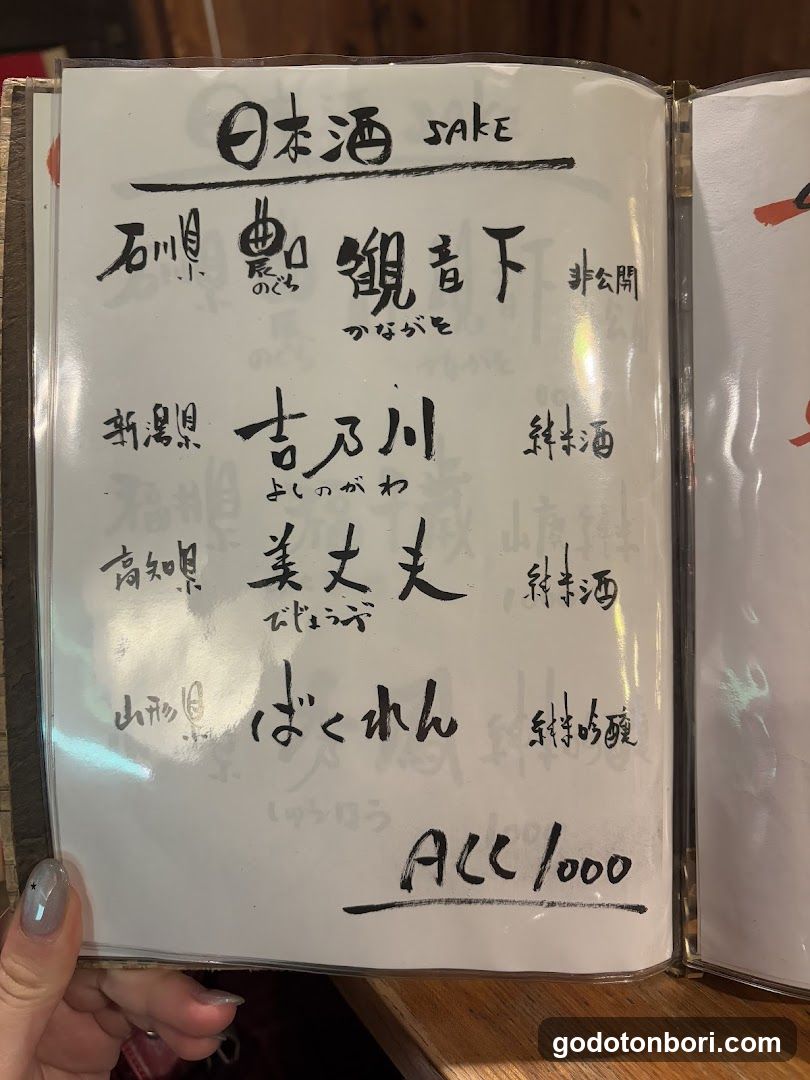 日本酒 SAKE
石川県 農口 観音下 非公開
のぐち かながそ
新潟県 吉乃川 純米酒
よしのがわ
高知県 美丈夫 純米酒
びじょうふ
山形県 ばくれん 純米吟醸
ALL 1000
godotonbori.com